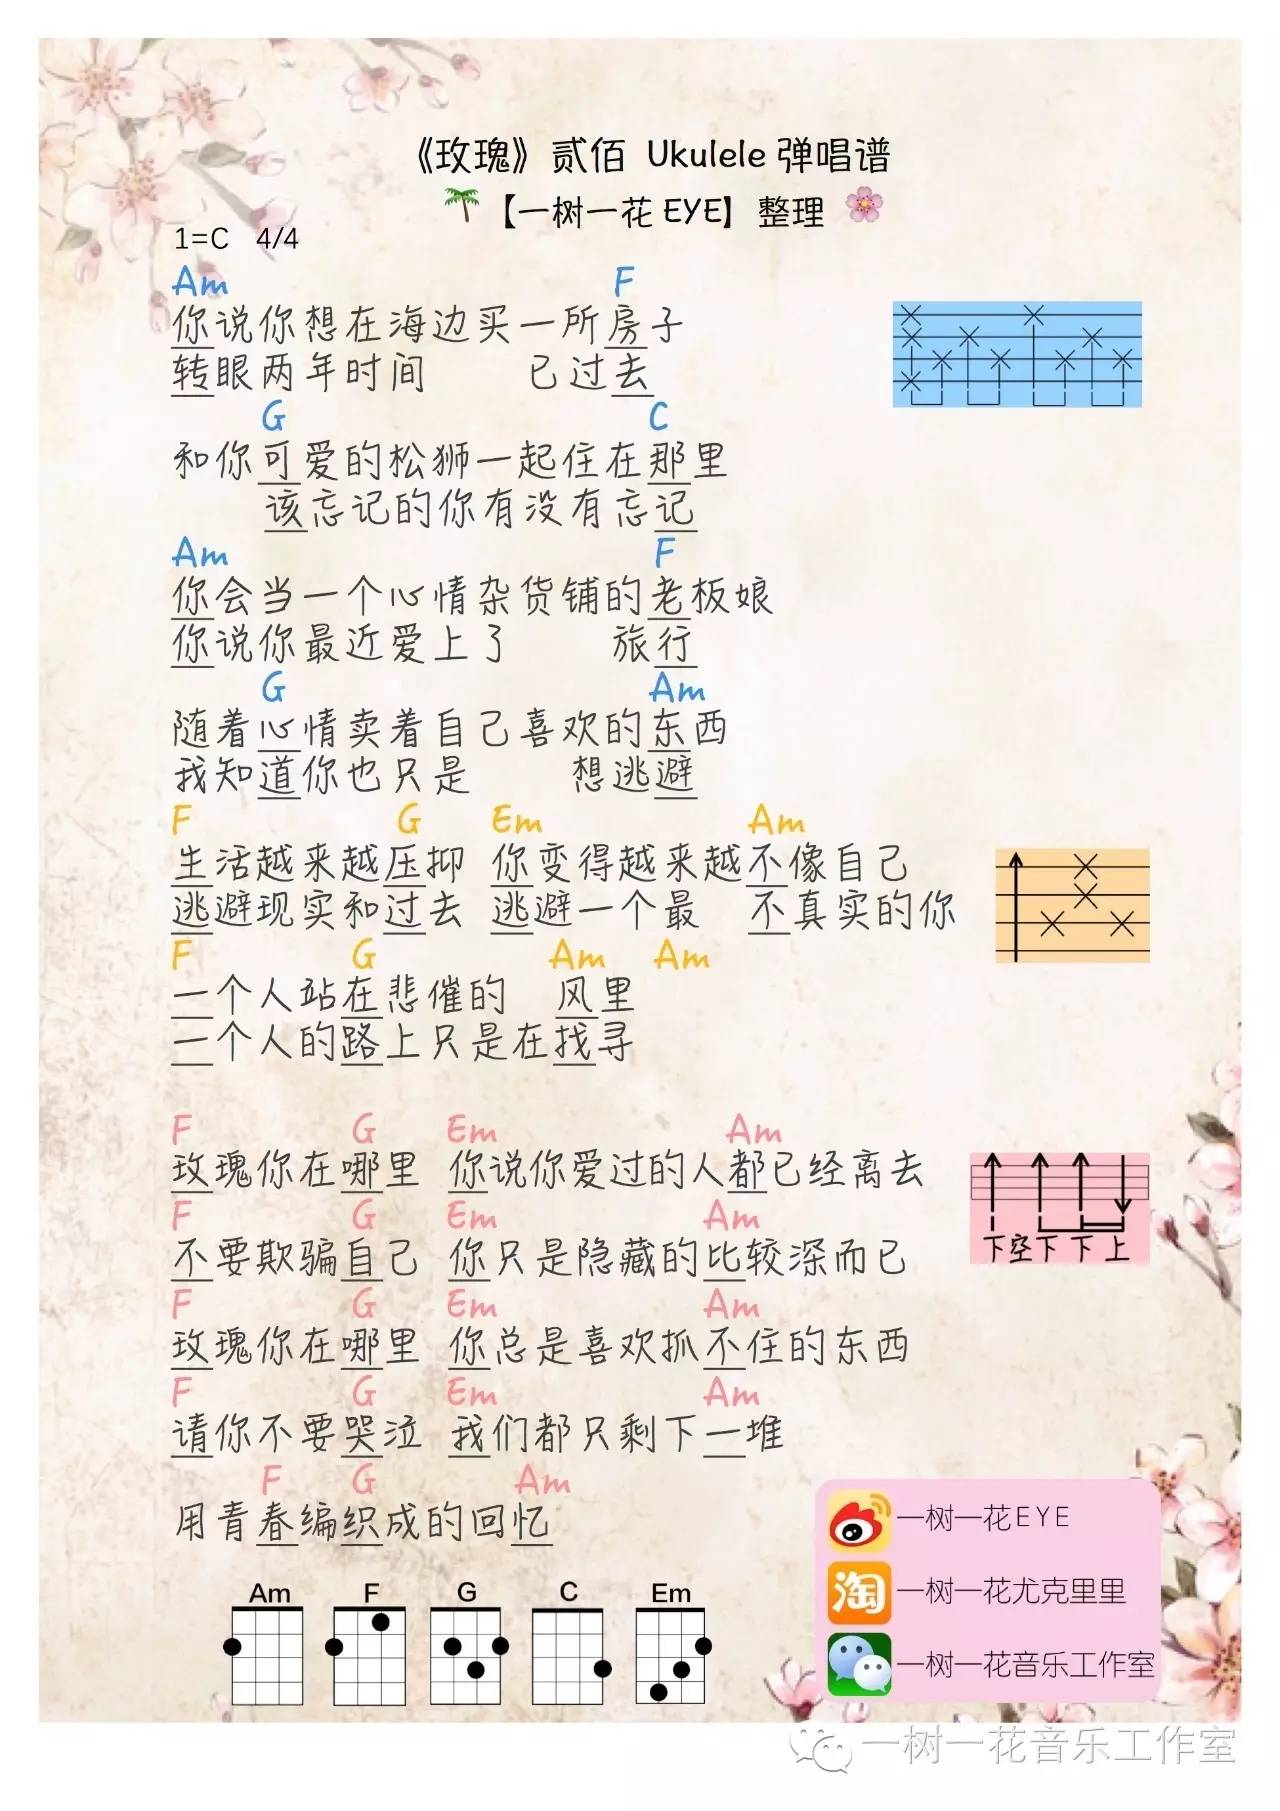 《玫瑰》贰佰 Ukulele 弹唱谱
【一树一花 EYE】整理
1=C 4/4
Am F
你说你想在海边买一所房子
转眼两年时间 已过去
G C
和你可爱的松狮一起住在那里
该忘记的你有没有忘记
Am F
你会当一个心情杂货铺的老板娘
你说你最近爱上了 旅行
G Am
随着心情卖着自己喜欢的东西
我知道你也只是 想逃避
F G Em Am
生活越来越压抑 你变得越来越不像自己
逃避现实和过去 逃避一个最 不真实的你
F G Am Am
一个人站在悲催的 风里
一个人的路上只是在找寻
F G Em Am
玫瑰你在哪里 你说你爱过的人都已经离去
下空下 下 上
F G Em Am
不要欺骗自己 你只是隐藏的比较深而已
F G Em Am
玫瑰你在哪里 你总是喜欢抓不住的东西
F G Em Am
请你不要哭泣 我们都只剩下一堆
F G Am
用青春编织成的回忆
Am F G C Em
一树一花EYE
淘 一树一花尤克里里
一树一花音乐工作室
一树一花音乐工作室